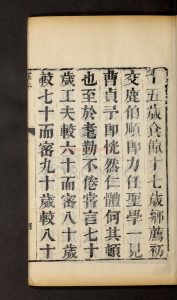 十五歲食餼十七歲鄉薦初
交鹿伯順即力任聖學一見
曹貞予即恍然仁體何其頓
也至於耄勤不倦嘗言七十
歲工夫較六十而密八十歲
較七十而密九十歲較八十